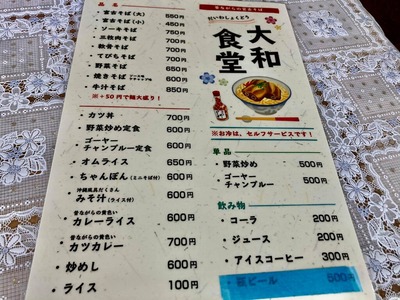 品名
宮古そば(大) 550円
宮古そば(小) 450円
ソーキそば 750円
三枚肉そば 700円
軟骨そば 700円
てびちそば 700円
野菜そば 700円
焼きそば 600円
牛汁そば 850円
※+50円で麺大盛り!
カツ丼 700円
野菜炒め定食 600円
ゴーヤー
チャンプルー定食 600円
オムライス 650円
ちゃんぽん(ミニそば付) 600円
沖縄風具だくさん
みそ汁(ライス付) 600円
昔ながらの黄色い
カレーライス 600円
昔ながらの黄色い
カツカレー 700円
炒めし 600円
ライス 100円
だいわしょくどう
大和
食堂
※お冷は、セルフサービスです!
単品
野菜炒め 500円
ゴーヤー
チャンプルー 500円
飲み物
コーラ 200円
ジュース 200円
アイスコーヒー 300円
瓶ビール 500円